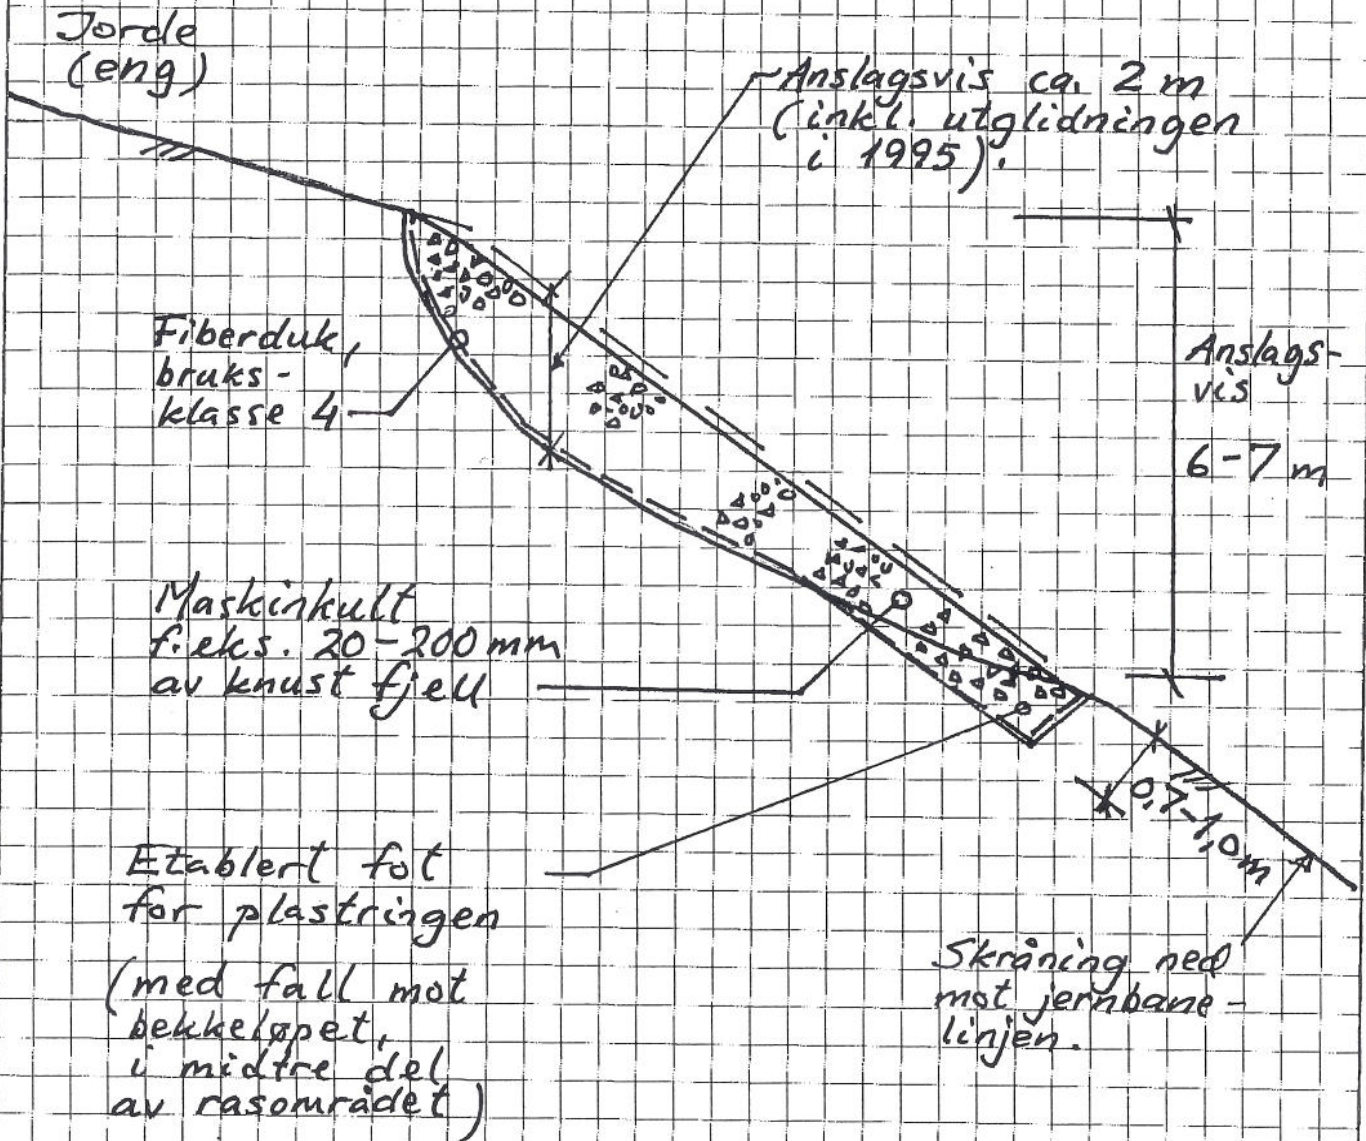 Jorde
(eng)
Anslagsvis ca. 2 m
(inkl. utglidningen
i 1995).
Fiberduk,
bruks-
klasse 4
Anslags-
vis
6-7 m
Maskinkult
f.eks. 20-200 mm
av knust fjell
0,7-1,0 m
Etablert fot
for plastringen
(med fall mot
bekkeløpet,
i midtre del
av rasområdet)
Skråning ned
mot jernbane-
linjen.